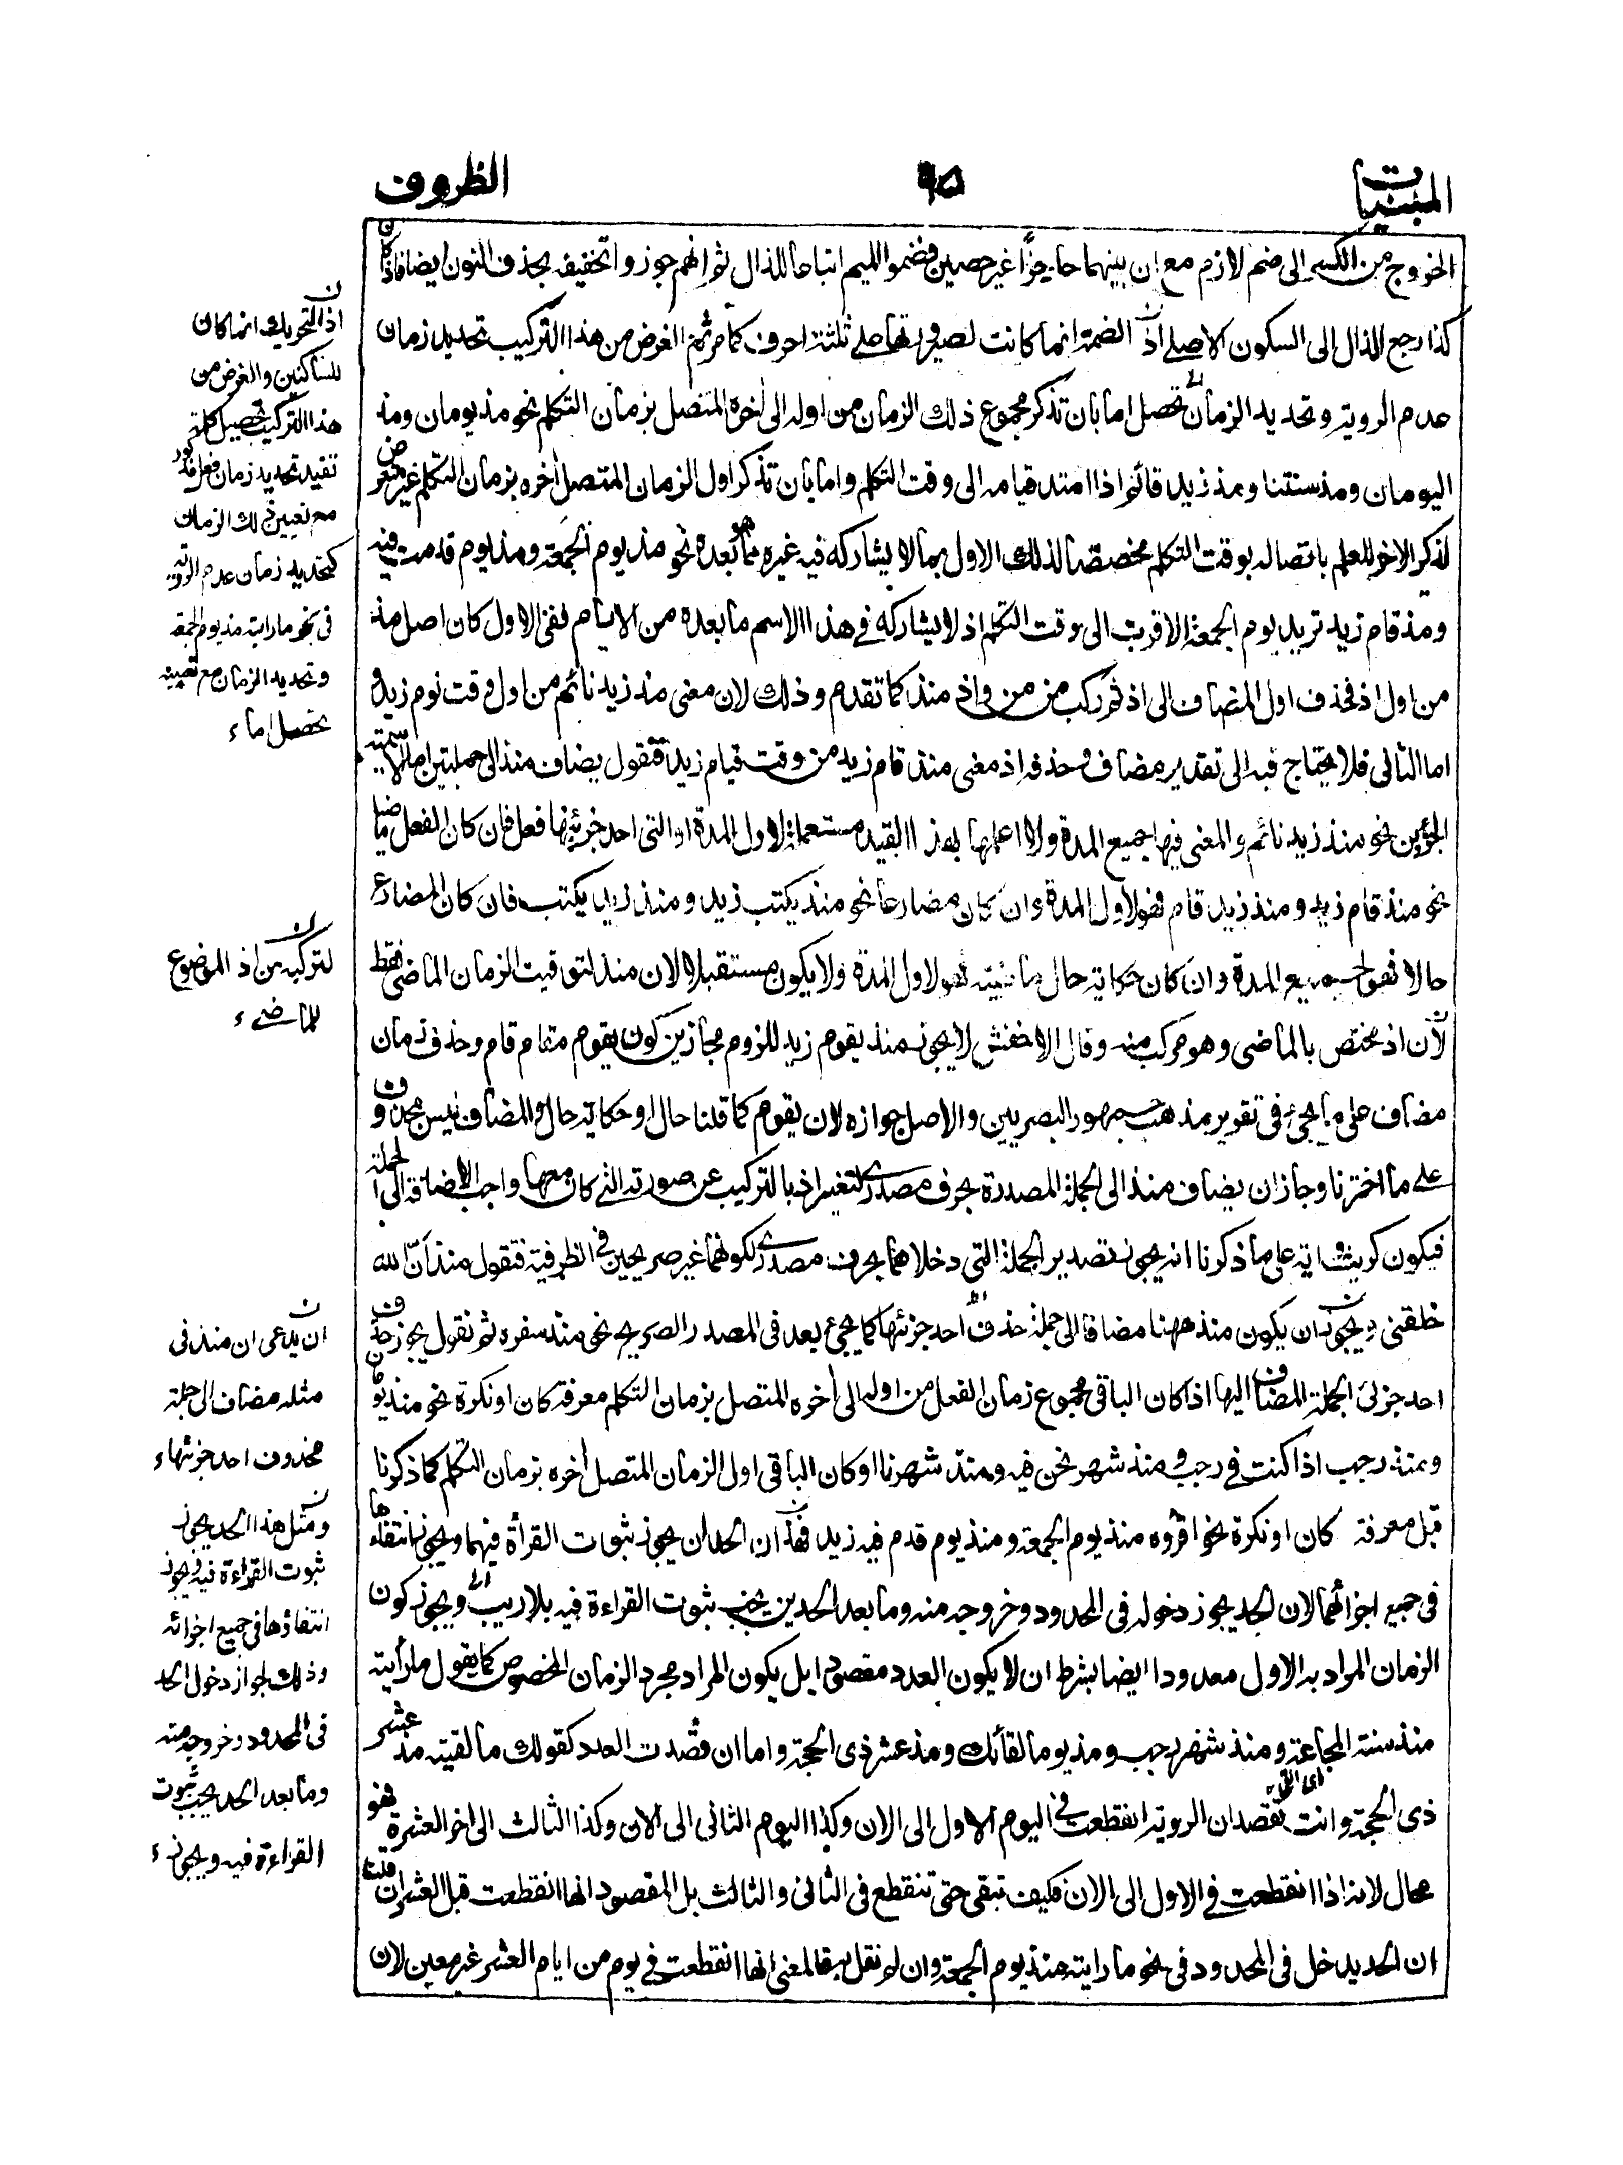 المبنيات
٩٥
الظروف
الخروج من الكسر الى ضم لازم مع ان بينهما حاجزا غير حصين فضموا الميم اتباعا للذال ثم انهم جوزوا تخفيفه بحذف النون ايضا فاذا كان
كذا رجع الذال الى السكون الاصلي اذ الضمة انما كانت لصيرورتها على ثلثة احرف كما مر ثم الغرض من هذا التركيب تحديد زمان
عدم الروية وتحديد الزمان يحصل اما بان تذكر مجموع ذلك الزمان من اوله الى اخره المتصل بزمان التكلم نحو مذ يومان ومذ
اليومان ومذ سنتنا ومذ زيد قائم اذا امتد قيامه الى وقت التكلم واما بان تذكر اول الزمان المتصل اخره بزمان التكلم غير متعرض
لذكر الاخر للعلم باتصاله بوقت التكلم مخصصا لذلك الاول بما لا يشاركه فيه غيره مما هو بعده نحو مذ يوم الجمعة ومذ يوم قدمت فيه
ومذ قام زيد تريد يوم الجمعة الاقرب الى وقت التكلم اذ لا يشاركه في هذا الاسم ما بعده من الايام ففى الاول كان اصل مذ
من اول اذ فحذف اول المضاف الى اذ ثم ركب من من واذ منذ كما تقدم وذلك لان معنى منذ زيد نائم من اول وقت نوم زيد و
اما الثانى فلا يحتاج فيه الى تقدير مضاف وحذفه اذ معنى منذ قام زيد من وقت قيام زيد فنقول يضاف منذ الى جملتين اما الاسمية
الجزئين نحو منذ زيد نائم والمعنى فيها جميع المدة ولا اعلمها بهذا القيد مستعملة لاول المدة او التى احد جزئيها فعل فان كان الفعل ماضيا
نحو منذ قام زيد ومنذ زيد قام فهو لاول المدة وان كان مضارعا نحو منذ يكتب زيد ومنذ زيد يكتب فان كان المضارع
حالا فهو لجميع المدة وان كان حكاية حال ماضية فهو لاول المدة ولا يكون مستقبلا لان منذ لتوقيت الزمان الماضى فقط
لان اذ مختص بالماضى وهو مركب منه وقال الاخفش لا يجوز منذ يقوم زيد للزوم مجازين كون يقوم مقام قام وحذف زمان
مضاف على ما يجئ فى تقرير مذهب جمهور البصريين والاصل جوازه لان يقوم كما قلنا حال او حكاية حال والمضاف ليس محذوفا
على ما اخترنا وجاز ان يضاف منذ الى الجملة المصدرة بحرف مصدرى لتغير اذ بالتركيب عن صورته التى كان معها واجب الاضافة الى الجملة
فيكون كريث واية على ما ذكرنا انه يجوز تصدير الجملة التى دخلاهما بحرف مصدرى لكونهما غير صريحين فى الظرفية فتقول منذ ان الله
خلقنى ويجوز ان يكون منذ ههنا مضافا الى جملة حذف احد جزئيها كما يجئ بعد فى المصدر الصريح نحو منذ سفره ثم نقول يجوز حذف
احد جزئى الجملة المضاف اليها اذا كان الباقى مجموع زمان الفعل من اوله الى اخره المتصل بزمان التكلم معرفة كان او نكرة نحو منذ يومان
ومنذ رجب اذا كنت فى رجب ومنذ شهر نحن فيه ومنذ شهرنا او كان الباقى اول الزمان المتصل اخره بزمان التكلم كما ذكرنا
قبل معرفة كان او نكرة نحو اقرؤه منذ يوم الجمعة ومنذ يوم قدم فيه زيد فهذان الحدان يجوز ثبوت القرأة فيهما ويجوز انتفاءها
فى جميع اجزائهما لان الحد يجوز دخوله فى المحدود وخروجه منه وما بعد الحدين يجب ثبوت القراءة فيه بلا ريب ويجوز كون
الزمان المراد به الاول معدودا ايضا بشرط ان لا يكون العدد مقصودا بل يكون المراد مجرد الزمان المخصوص كما يقول مارأيته
منذ سنة المجاعة ومنذ شهر رجب ومذ يوما لقائك ومذ عشر ذى الحجة واما ان قصدت العدد كقولك ما لقيته مذ عشر
ذى الحجة وانت تقصد ان الروية انقطعت فى اليوم الاول الى الان وكذا اليوم الثانى الى الان وكذا الثالث الى اخر العشرة فهو
محال لانه اذا انقطعت فى الاول الى الان فكيف تبقى حتى تنقطع فى الثانى والثالث بل المقصود انها انقطعت قبل العشر ان قلنا
ان الحد يدخل فى المحدود فى نحو ما رايته منذ يوم الجمعة وان لم نقل به فالمعنى انها انقطعت فى يوم من ايام العشر غير معين لان
اذ التحريك انما كان
للساكنين والغرض من
هذا التركيب تحصيل كلمة
تفيد تحديد زمان فعل مذكور
مع تعيين ذلك الزمان
كتحديد زمان عدم الروية
فى نحو ما رايته منذ يوم الجمعة
وتحديد الزمان مع تعيينه
يحصل اما
لتركبه من اذ الموضوع
للماضى
ان يدعى ان منذ فى
مثله مضاف الى جملة
محذوف احد جزئيها
ومثل هذا الحد يجوز
ثبوت القراءة فيه ويجوز
انتفاؤها فى جميع اجزائه
وذلك لجواز دخول الحد
فى المحدود وخروجه منه
وما بعد الحد يجب ثبوت
القراءة فيه ويجوز